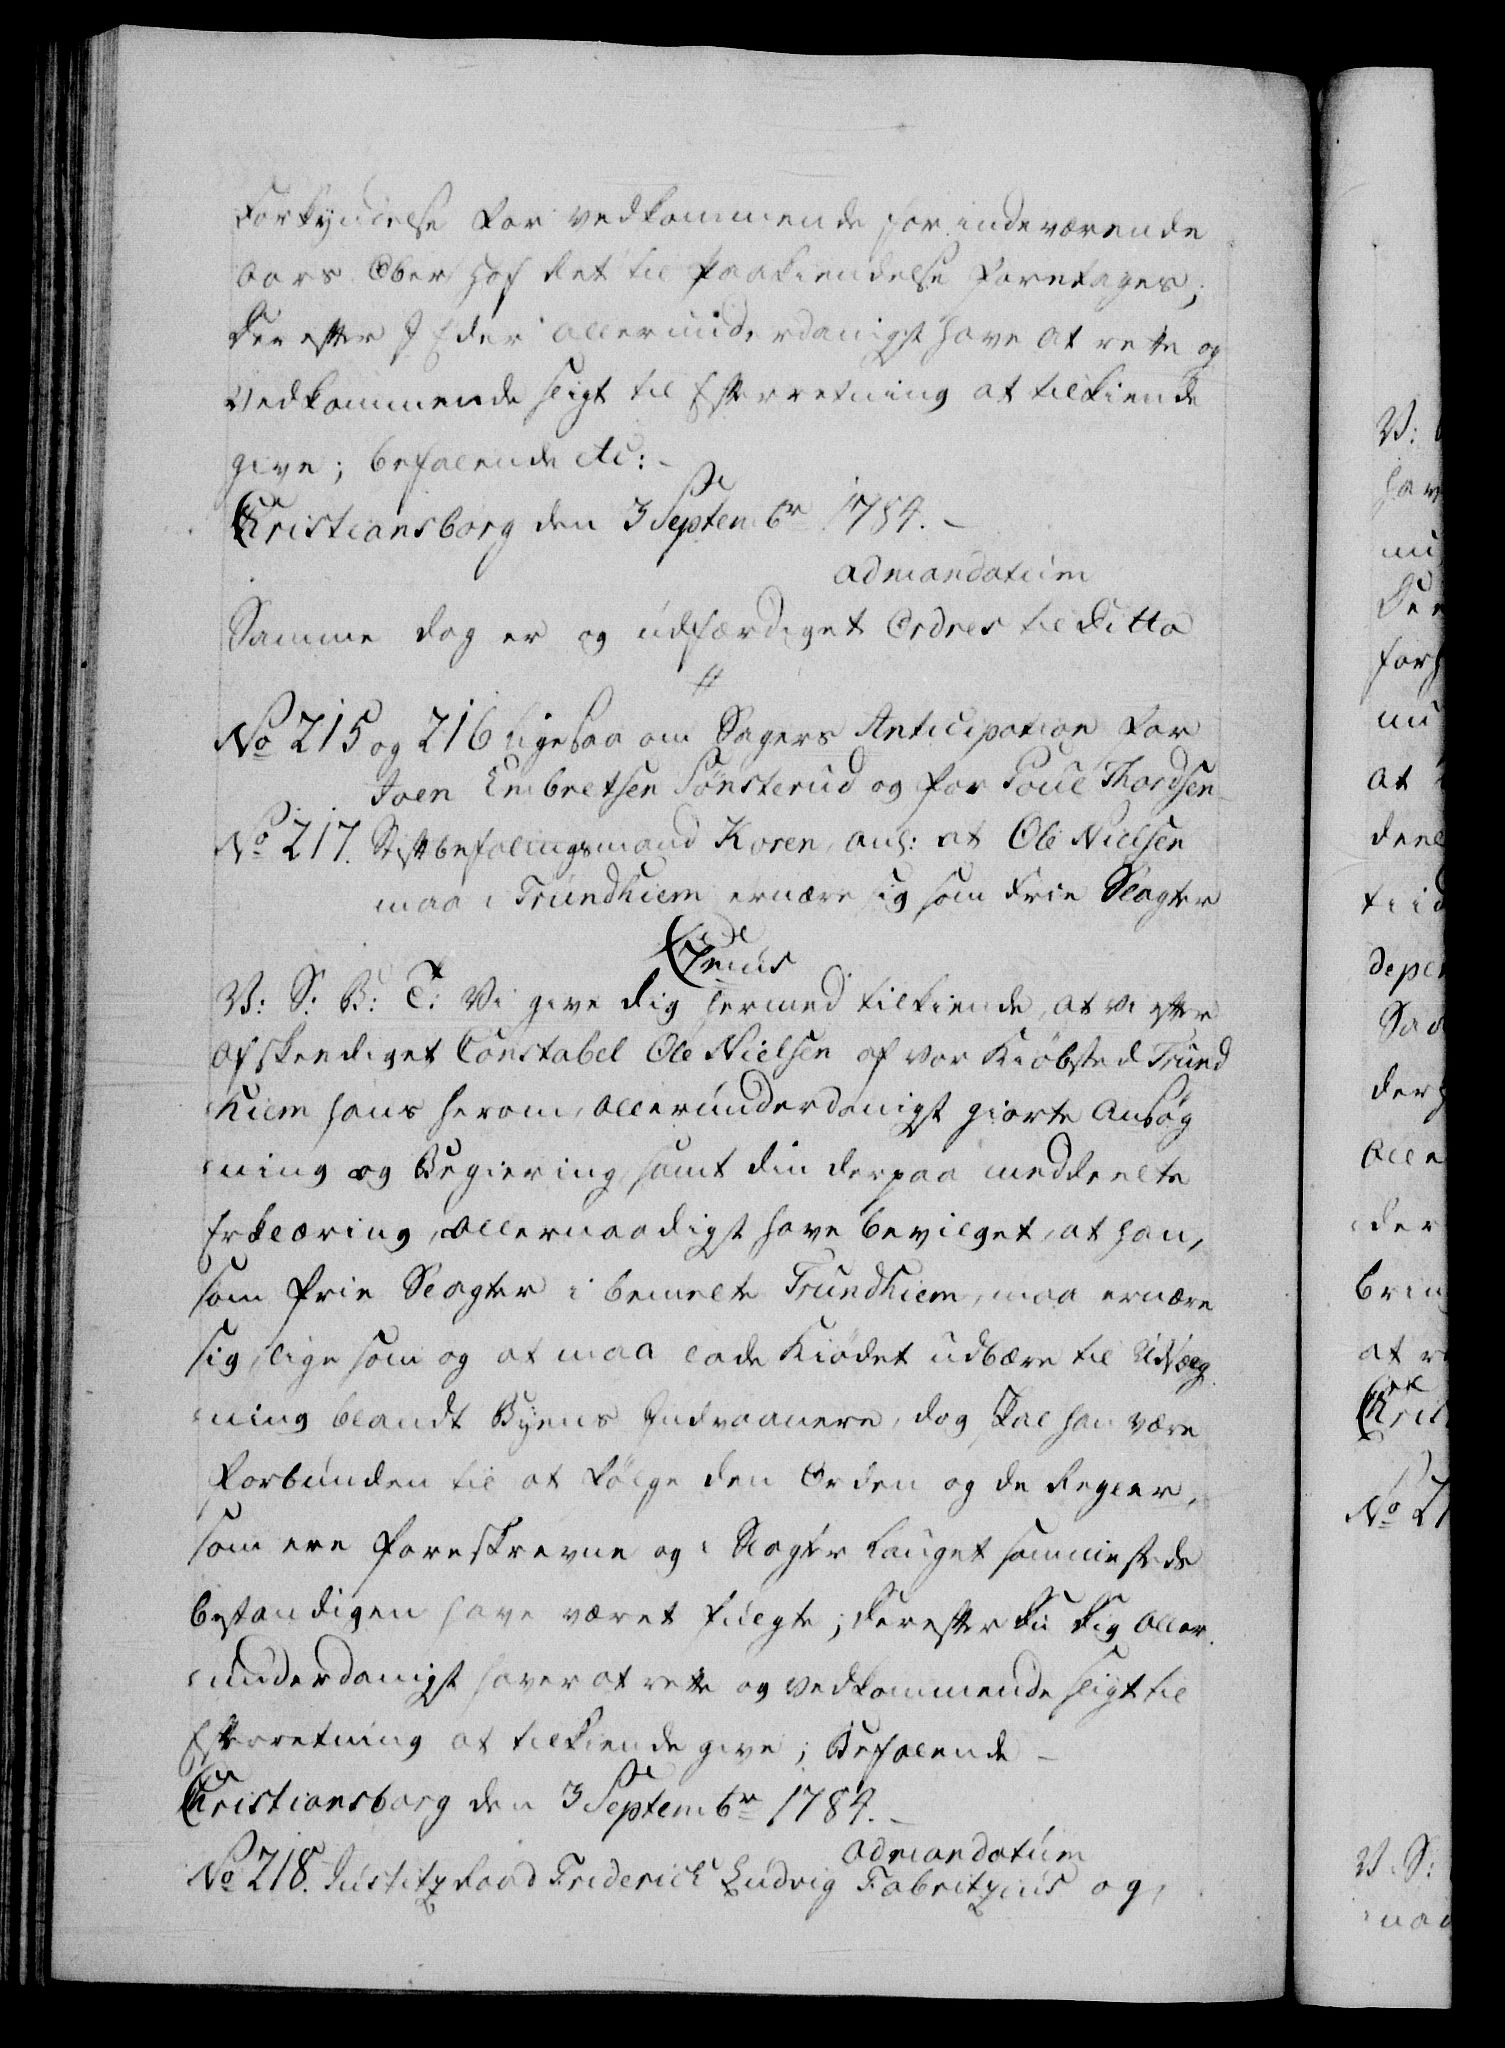 Forkyndelse for vedkommende for indeværende
Aars Ober Hof Ret til Paakiendelse foretages;
Derefter I Eder allerunderdanigst have at rette og
vedkommende sligt til Efterretning at tilkiende
give; befalende etc:
Christiansborg den 3 Septembr 1784.
ad mandatum
Samme dag er og udfærdiget Ordres til Ditto
No 215 og 216 ligesaa om Sagers Anticipation for
Joen Embretsen Sønsterud og for Poul Thordsen
No 217. Stiftbefalingsmand Koren, anl: at Ole Nielsen
maa i Trundhiem ernære sig som frie Slagter
C7mus
V: S: B: T: Vi give dig hermed tilkiende, at vi efter
afskediget Constabel Ole Nielsen af vor Kiøbsted Trund
hiem hans herom, allerunderdanigst giorte Ansøg
ning og Begiering, samt din derpaa meddeelte
Erklæring, allernaadigst have bevilget, at han,
som frie Slagter i bemelte Trundhiem, maa ernære
sig, lige som og at maa lade Kiødet udbære til Udsælg
ning blandt Byens Indvaanere, dog skal han være
forbunden til at følge den Orden og de Regler,
som ere foreskrevne og i Slagter Lauget sammesteds
bestandigen have været fulgte; Derefter du dig aller
underdanigst haver at rette og vedkommende sligt til
Efterretning at tilkiende give; Befalende
Christiansborg den 3 Septembr 1784.
ad mandatum
No 218. Justitz Raad Friderich Ludvig Fabritzius og,